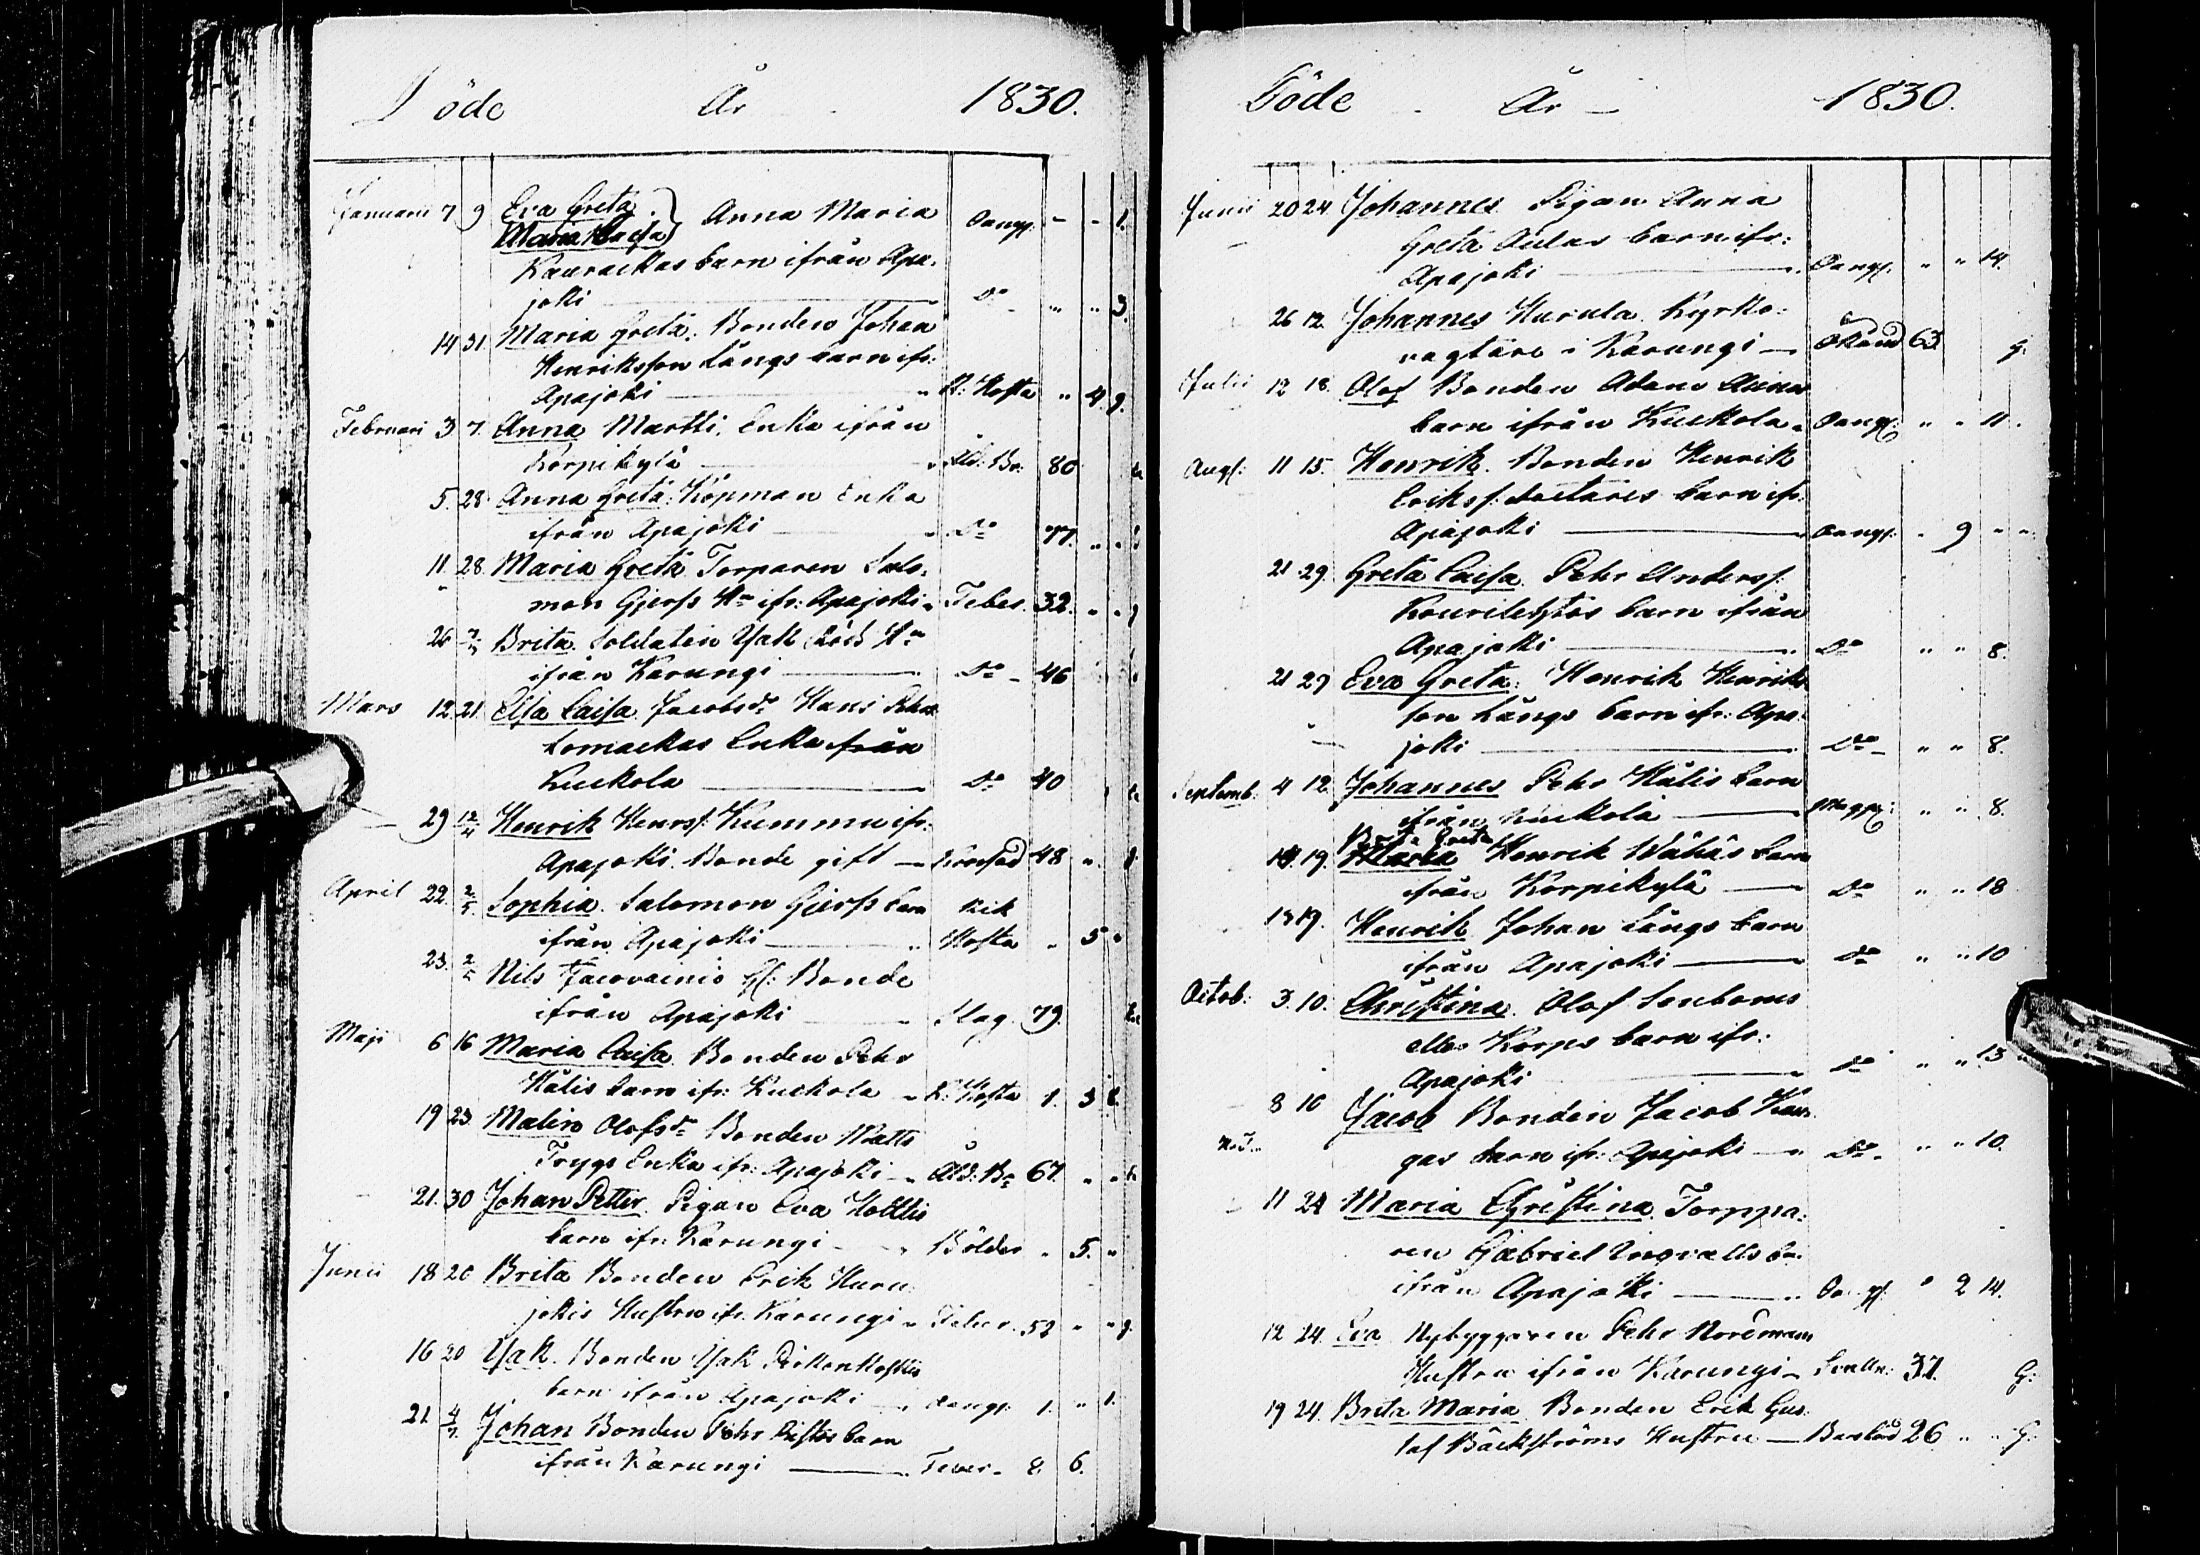 Döde År 1830.
Januarii 7 9 Eva Greta
Maria Caisa } Anna Maria Oangf. - - 1.
Kaurackas barn ifrån Apa-
joki D:o " " 3.
14 31 Maria Greta. Bonden Johan
Henriksson Långs barn ifr:
Apajoki K: Hosta " 4. 9.
Februari 3 7. Anna Martti, Enka ifrån
Korpikylä Åld: Br: 80
5. 28. Anna Greta Köpman Enka
ifrån Apajoki D:o 77. " "
11 28. Maria Greta Torparen Salo-
mon Gjerss H:u ifr: Apajoki Feber. 32. " "
26 Brita Soldaten Isak H:u
ifrån Karungi D:o 46
Mars 12. 21. Elsa Caisa Jacobsd:r Hans Pehrs
Lomackas Enka från
Kuckola D:o 40
29 12/4 Henrik Henrss. Kummu ifr:
Apajoki. Bonde gift 48 "
April 22. 2/5 Sophia. Salomon Gjerss barn Kik
ifrån Apajoki Hosta " 5 "
23. 2/5 Nils Bonde
ifrån Apajoki Slag 79.
Maji 6 16 Maria Caisa Bonden Pehr
Hälis barn ifr: Kuckola K: Hosta 1. 3
19 23 Malin Olofsd:r Bonden Matts
Trygs Enka ifr: Apajoki Åld: Br 67. " "
21. 30 Johan Petter. Pigan Eva Hottis
barn ifr: Karungi Bölder " 5. "
Junii 18 20 Brita Bonden Erik Huru-
jokis Hustru ifr. Karungi Feber. 52 " " g.
16 20 Isak. Bonden Isak
barn ifrån Apajoki Oangf. 1. " 1.
21 4/7. Johan Bonden Pehr barn
ifrån Karungi Fever. 2. 6.
Döde År 1830.
Junii 20 24 Johannes Pigan Anna
Greta Aulas barn ifr:
Apajoki Oangf. " " 14.
26 12. Johannes Hurula Kyrko-
vagtare i Karungi Okänd 63 G:
Julii 12 18. Olof Bonden Adam
barn ifrån Kuckola. Oangf. " " 11.
Augs: 11 15. Henrik. Bonden Henrik
Erikss. barn ifr.
Apajoki Oangf. " 9 " "
21 29. Greta Caisa. Pehr Anderss:
Kourilehtos barn ifrån
Apajoki D:o " " 8.
21 29 Eva Greta: Henrik Henriks-
son Långs barn ifr: Apa-
joki D:o " " 8.
Septemb: 4 12. Johannes Pehr Hälis barn
ifrån Kuckola " " 8.
Brita Greta
14. 19. Maria Henrik Wähäs barn
ifrån Korpikylä D:o " " 18
13 19. Henrik Johan Längs barn
ifrån Apajoki D:o " " 10
Octob: 3. 10. Christina. Olof Senboms
eller Korps barn ifr:
Apajoki D:o " " 13
8 10 Jacob Bonden Jacob Kar-
gas barn ifr: Apajoki D:o " " 10.
11 24 Maria Christina. Torppa-
ren Gabriel Ingvalls ba:
ifrån Apajoki Oangf. " 2 14.
12 24. Eva Nybyggaren Pehr Nordmans
Hustru ifrån Karungi 37. G:
19 24. Brita Maria Bonden Erik Gus-
taf Bäckströms Hustru Barsäng 26 " " G: